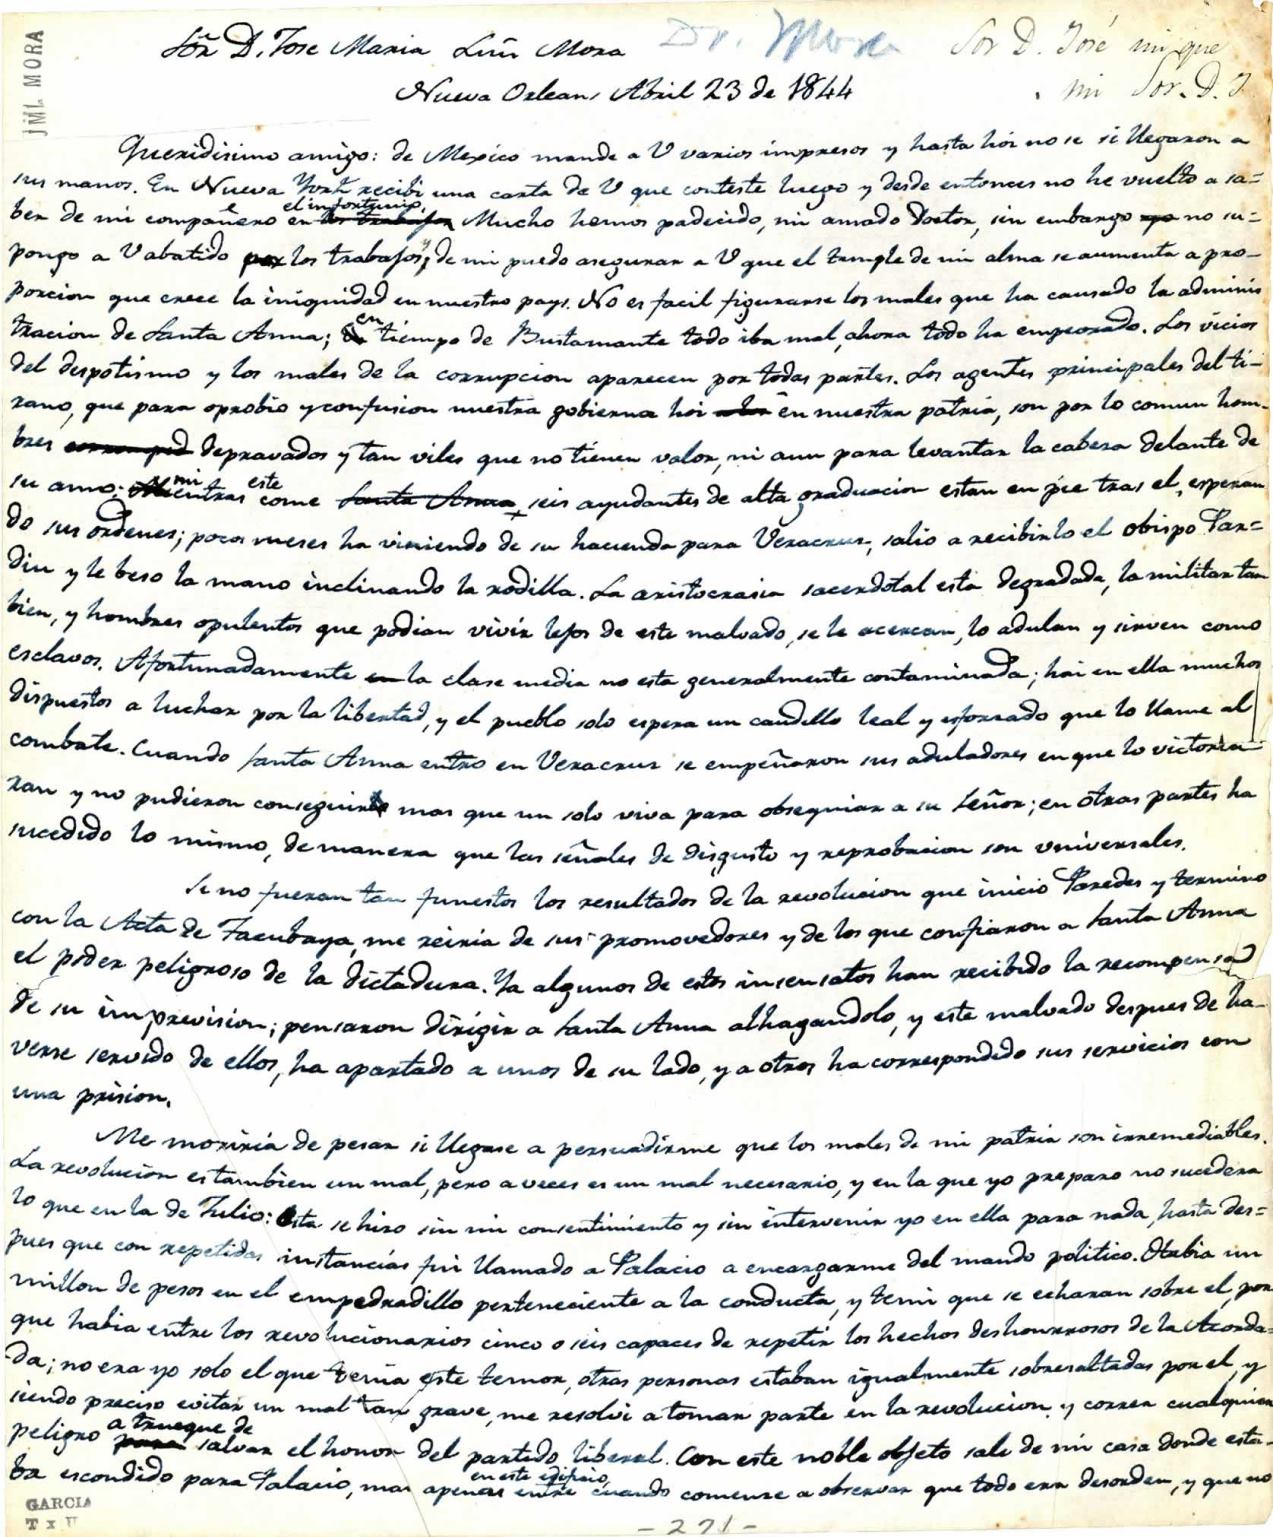 JML. MORA
Sõr D. Jose Maria Luis Mora
Dr. Mora
Sor D. José mi que
mi Sor. D. J
Nueva Orleans Abril 23 de 1844
Queridisimo amigo: de Mexico mande a V varios impresos y hasta hoi no se si llegaron a
sus manos. En Nueva York recibi una carta de V que conteste luego y desde entonces no he vuelto a sa=
ber de mi compañero en el infortunio. Mucho hemos padecido, mi amado Doctor, sin embargo no su=
pongo a V abatido por los trabajos, y de mi puedo asegurar a V que el temple de mi alma se aumenta a pro-
porcion que crece la iniquidad en nuestro pays. No es facil figurarse los males que ha causado la adminis
tracion de Santa Anna; en tiempo de Bustamante todo iba mal, ahora todo ha empeorado. Los vicios
del despotismo y los males de la corrupcion aparecen por todas partes. Los agentes principales del ti-
rano, que para oprobio y confusion nuestra gobierna hoi en nuestra patria, son por lo comun hom-
bres depravados y tan viles que no tienen valor, ni aun para levantar la cabesa delante de
su amo: mientras este come Santa Anna seis ayudantes de alta graduacion estan en pie tras el, esperan
do sus ordenes; pocos meses ha viniendo de su hacienda para Veracrus, salio a recibirlo el obispo Par=
diu y le beso la mano inclinando la rodilla. La aristocrasia sacerdotal esta degradada, la militar tam
bien, y hombres opulentos que podian vivir lejos de este malvado, se le acercan, lo adulan y sirven como
esclavos. Afortunadamente en la clase media no esta generalmente contaminada; hai en ella muchos
dispuestos a luchar por la libertad, y el pueblo solo espera un caudillo leal y esforsado que lo llame al
combate. Cuando Santa Anna entro en Veracrus se empeñaron sus aduladores en que lo victorea-
ran y no pudieron conseguir mas que un solo viva para obsequiar a su Señor; en otras partes ha
sucedido lo mismo, de manera que las señales de disgusto y reprobacion son universales.
Si no fueran tan funestos los resultados de la revolucion que inicio Paredes y termino
con la Acta de Tacubaya, me reiria de sus promovedores y de los que confiaron a Santa Anna
el poder peligroso de la dictadura. Ya algunos de estos insensatos han recibido la recompensa
de su imprevision; pensaron dirigir a Santa Anna alhagandolo, y este malvado despues de ha-
verse servido de ellos, ha apartado a unos de su lado, y a otros ha correspondido sus servicios con
una prision.
Me moriria de pesar si llegase a persuadirme que los males de mi patria son irremediables.
La revolucion es tambien un mal, pero a veces es un mal necesario, y en la que yo preparo no sucedera
lo que en la de Julio: esta se hiso sin mi consentimiento y sin intervenir yo en ella para nada, hasta des=
pues que con repetidas instancias fui llamado a Palacio a encargarme del mando politico. Habia un
millon de pesos en el empedradillo perteneciente a la conducta, y temi que se echaran sobre el, por
que habia entre los revolucionarios cinco o seis capaces de repetir los hechos deshonrrosos de la Acorda=
da; no era yo solo el que tenia este temor, otras personas estaban igualmente sobresaltadas por el, y
siendo preciso evitar un mal tan grave, me resolvi a tomar parte en la revolucion y correr cualquier
peligro a trueque de salvar el honor del partido liberal. Con este noble objeto sali de mi casa donde esta-
ba escondido para Palacio, mas apenas entre en este edificio, cuando comense a observar que todo era desorden, y que no
GARCIA
- 271 -